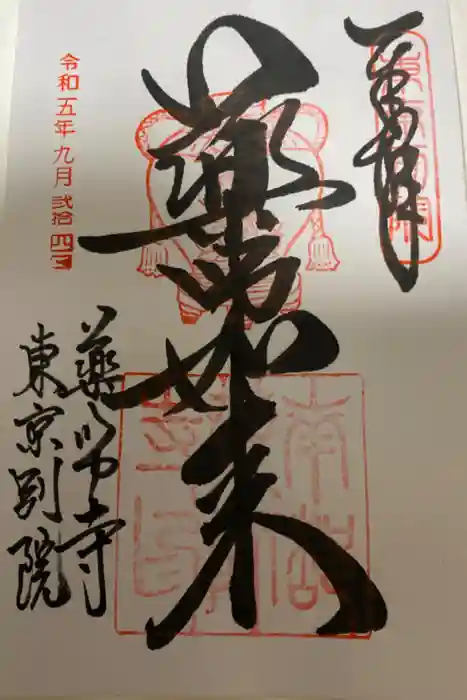 奉拝
東京別院
薬師如来
令和五年九月弐拾四日
薬師寺
東京別院